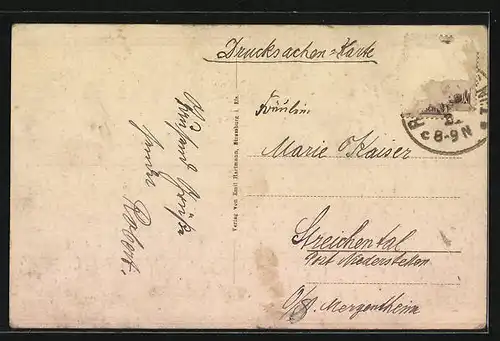 Drucksachen=Karte
Fräulein
Marie Kaiser
Streichental
Post Niederstetten
O/A. Mergentheim
Verlag von Emil Hartmann, Strassburg i. Els.
Grüße
Robert.
8-9N